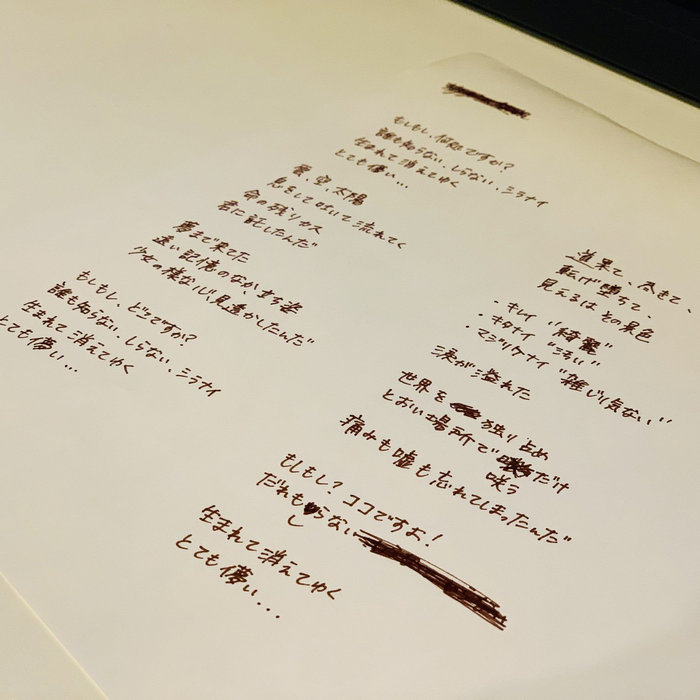 もしもし、何処ですか?
誰も知らない、しらない、シラナイ
生まれて消えてゆく
とても儚い...
愛、空、太陽
息をして吐いて流れてく
命の残りカス
君に託したんだ
夢まで来てた
遠い記憶のなか、まち姿
少女の様な
見透かしたんだ
もしもし、どこですか?
誰も知らない、しらない、シラナイ
生まれて消えてゆく
とても儚い...
道果て、尽きて、
転げ堕ちて、
見えるは その景色
・キレイ "綺麗"
・キタナイ "汚い"
・マジリケナイ "雑じり気ない"
涙が溢れた
世界を 独り占め
とおい場所で だけ
咲う
痛みも嘘も忘れてしまったんだ
もしもし?ココですよ!
だれも らない
し
生まれて消えてゆく
とても儚い...